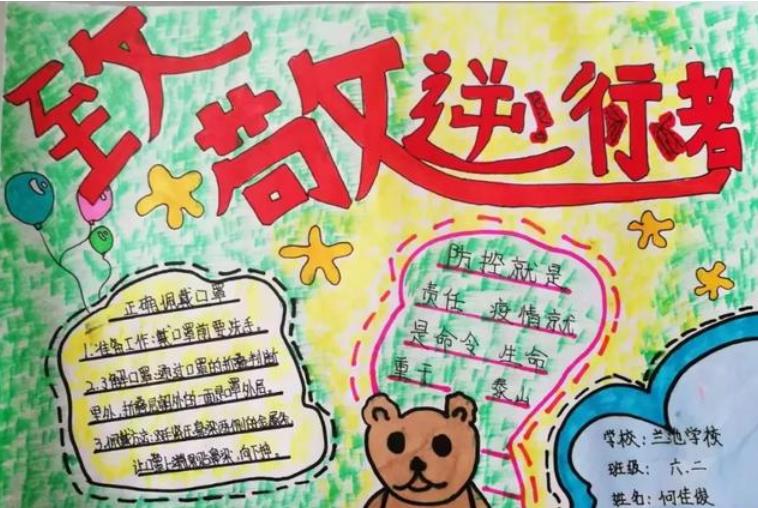 致敬逆行者
正确佩戴口罩
1.准备工作:戴口罩前要洗手。
2.了解口罩:通过口罩的折叠判断
里外,折叠层朝外的一面是口罩外层。
3.佩戴方法:
让口罩 向下拉。
防控就是
责任 疫情就
是命令 生命
重于 泰山
学校:兰池学校
班级: 六.二
姓名:何佳俊